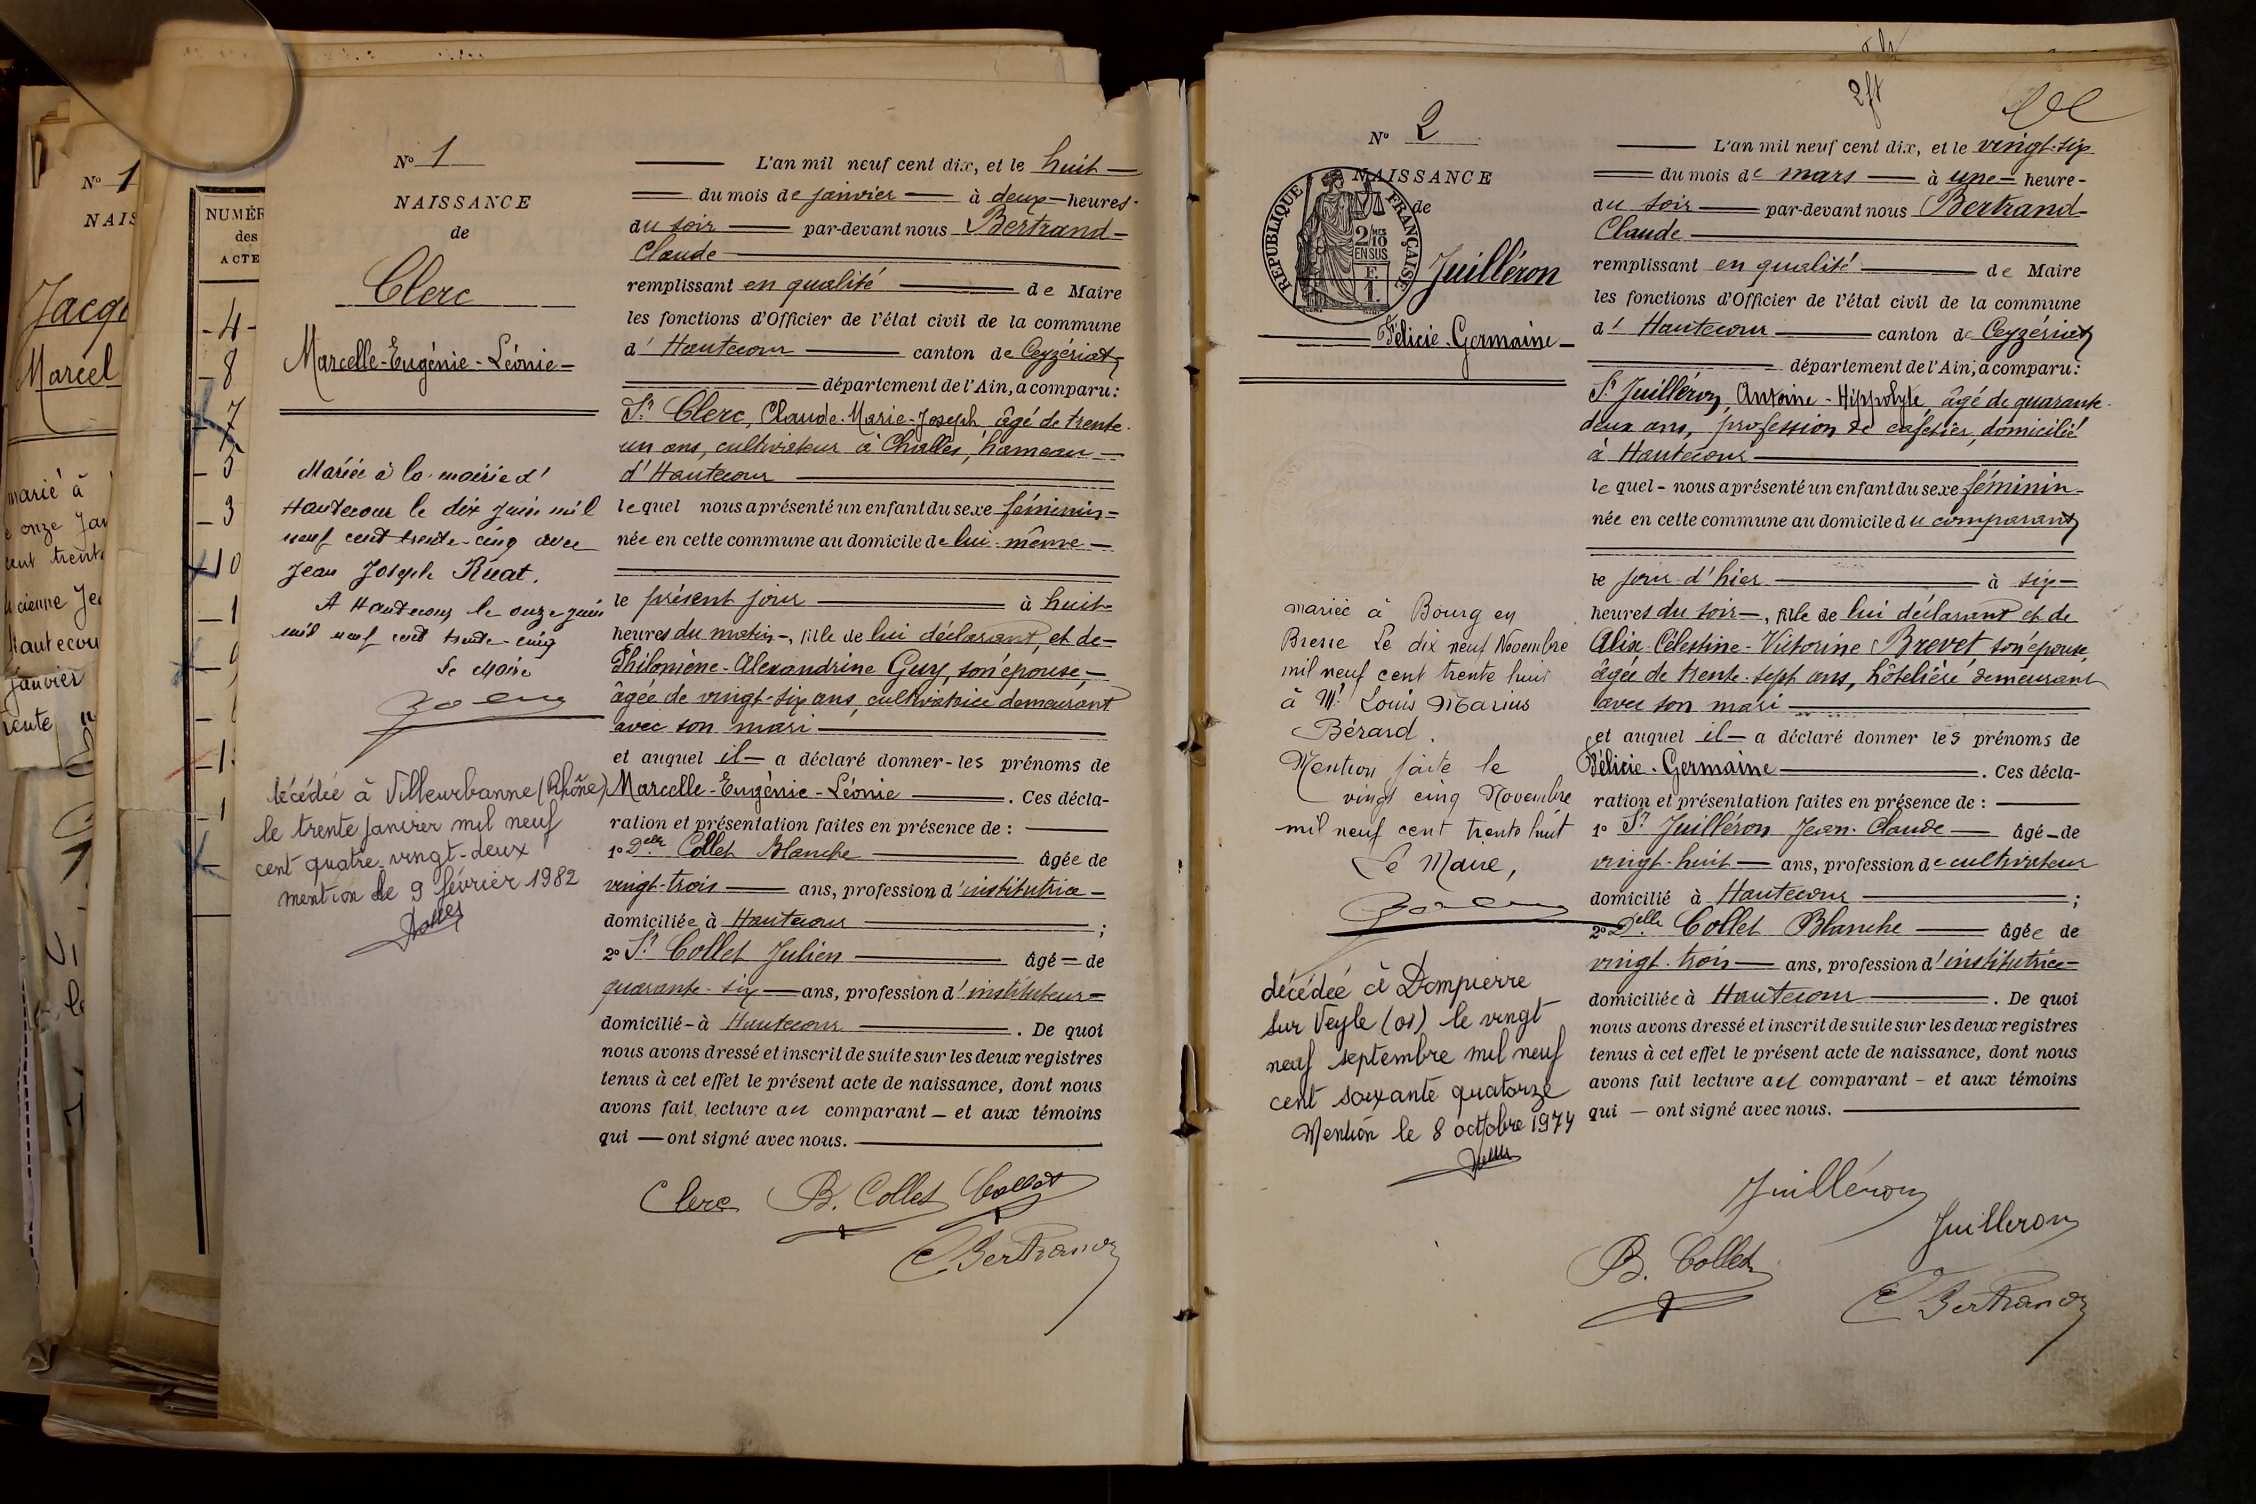 Nº 1
NAIS
Jacq
Marcel
marié à
onze Jan
cent trent
Hautecou
janvier
trente
NUMÉR
des
ACTE
4
8
7
5
3
10
1
9
1
1
Nº 1
NAISSANCE
de
Clerc
Marcelle-Eugénie-Léonie
Mariée à la mairie d'
Hautecour le dix juin mil
neuf cent trente-cinq avec
Jean Joseph Ruat.
A Hautecour le onze juin
mil neuf cent trente-cinq
Le Maire
décédée à Villeurbanne (Rhône)
le trente janvier mil neuf
cent quatre-vingt-deux
mention le 9 février 1982
L'an mil neuf cent dix, et le huit
du mois de janvier à deux heures
du soir par-devant nous Bertrand
Claude
remplissant en qualité de Maire
les fonctions d'Officier de l'état civil de la commune
d'Hautecour canton de Ceyzériat
département de l'Ain, a comparu:
Sr. Clerc, Claude-Marie-Joseph, âgé de trente-
un ans, cultivateur à Challes, hameau
d'Hautecour
lequel nous a présenté un enfant du sexe féminin
née en cette commune au domicile de lui-même
le présent jour à huit
heures du matin, fille de lui déclarant, et de
Philomène-Alexandrine Guy, son épouse,
âgée de vingt-six ans, cultivatrice demeurant
avec son mari
et auquel il a déclaré donner les prénoms de
Marcelle-Eugénie-Léonie. Ces décla-
ration et présentation faites en présence de:
1º Delle Collet Blanche âgée de
vingt-trois ans, profession d'institutrice
domiciliée à Hautecour;
2º Sr. Collet Julien âgé de
quarante-six ans, profession d'instituteur
domicilié à Hautecour. De quoi
nous avons dressé et inscrit de suite sur les deux registres
tenus à cet effet le présent acte de naissance, dont nous
avons fait lecture au comparant et aux témoins
qui ont signé avec nous.
Clerc B. Collet Collet
C Bertrand
2ft
Nº 2
NAISSANCE
de
RÉPUBLIQUE FRANÇAISE
2/10
EN SUS
F.
1.
Juilléron
Félicie-Germaine
mariée à Bourg en
Bresse Le dix neuf Novembre
mil neuf cent trente huit
à Mr. Louis Marius
Bérard.
Mention faite le
vingt cinq Novembre
mil neuf cent trente huit
Le Maire,
décédée à Dompierre
sur Veyle (01) le vingt
neuf septembre mil neuf
cent soixante quatorze
Mention le 8 octobre 1974
L'an mil neuf cent dix, et le vingt-six
du mois de mars à une heure
du soir par-devant nous Bertrand
Claude
remplissant en qualité de Maire
les fonctions d'Officier de l'état civil de la commune
d'Hautecour canton de Ceyzériat
département de l'Ain, a comparu:
Sr. Juilléron, Antoine-Hippolyte, âgé de quarante-
deux ans, profession de cafetier, domicilié
à Hautecour
lequel nous a présenté un enfant du sexe féminin
née en cette commune au domicile du comparant
le jour d'hier à six
heures du soir, fille de lui déclarant et de
Alix-Célestine-Victorine Brevet son épouse,
âgée de trente-sept ans, hôtelière demeurant
avec son mari
et auquel il a déclaré donner les prénoms de
Félicie-Germaine. Ces décla-
ration et présentation faites en présence de:
1º Sr. Juilléron Jean-Claude âgé de
vingt-huit ans, profession de cultivateur
domicilié à Hautecour;
2º Delle Collet Blanche âgée de
vingt-trois ans, profession d'institutrice
domiciliée à Hautecour. De quoi
nous avons dressé et inscrit de suite sur les deux registres
tenus à cet effet le présent acte de naissance, dont nous
avons fait lecture au comparant et aux témoins
qui ont signé avec nous.
Juilléron
Juilleron
B. Collet
C Bertrand